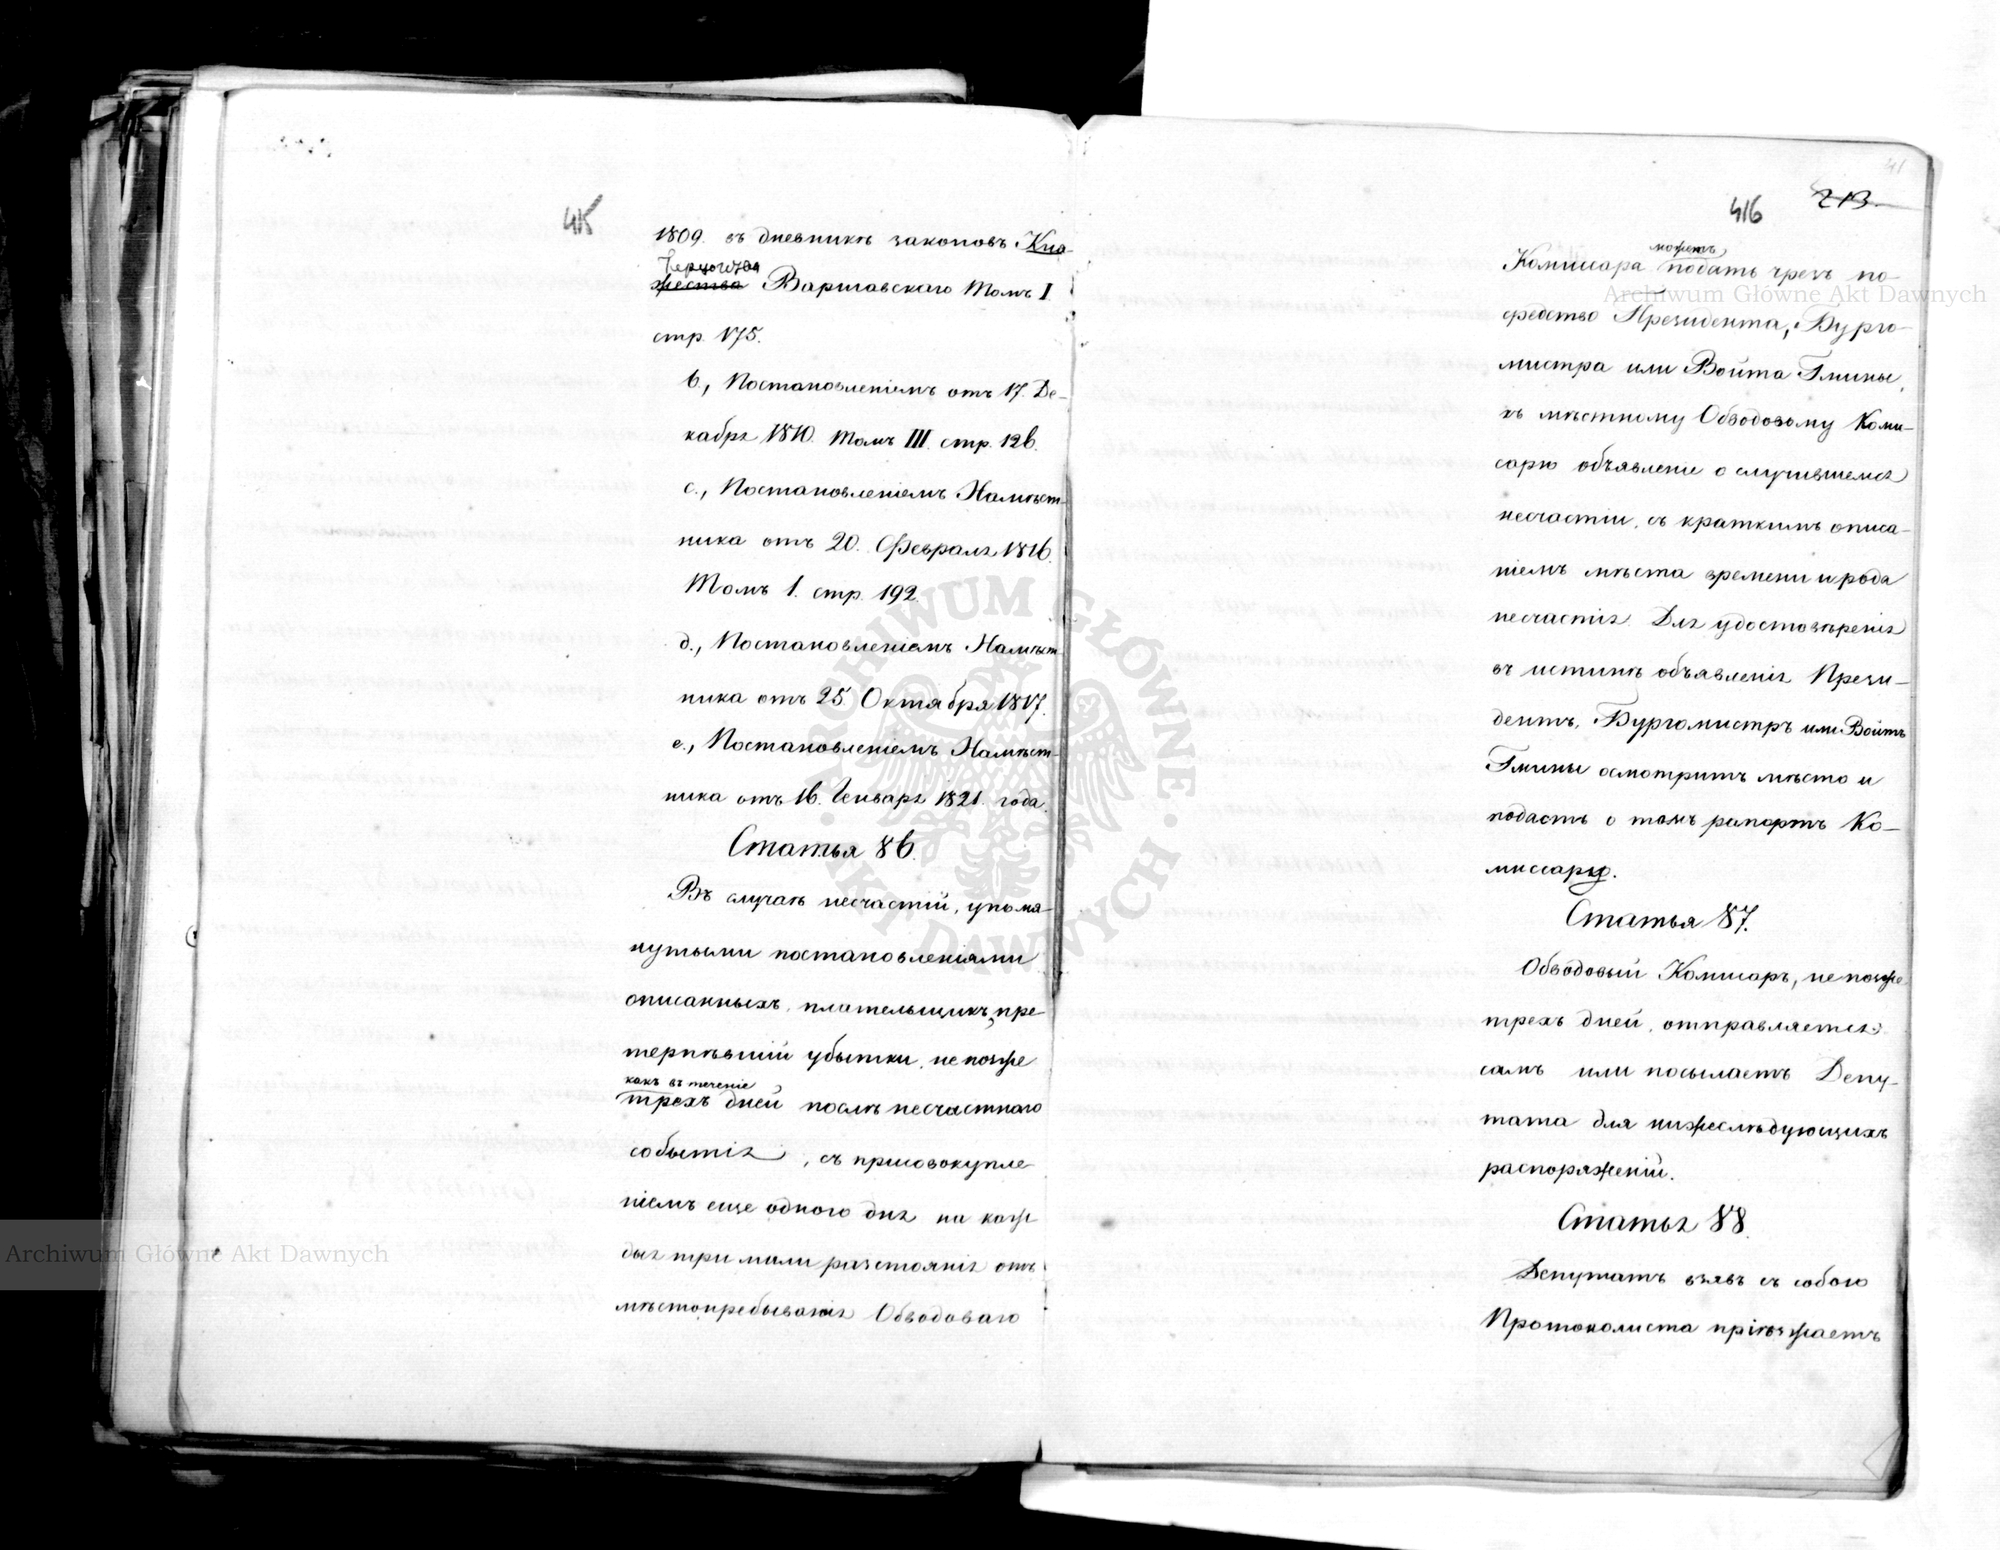 415
1809. въ дневникѣ законовъ Кня-
Герцогства
жества Варшавскаго Томъ I.
стр. 175.
b., Постановленіемъ отъ 17. Де-
кабря 1810. Томъ III. стр. 126.
c., Постановленіемъ Намѣст-
ника отъ 20. Февраля 1816.
Томъ 1. стр. 192.
d., Постановленіемъ Намѣст-
ника отъ 25 Октября 1817.
e., Постановленіемъ Намѣст-
ника отъ 16. Генваря 1821. года.
Статья 86.
Въ случаѣ несчастій, упомя-
нутыми постановленіями
описанныхъ, плательщикъ, пре-
терпѣвшій убытки, не позже
какъ въ теченіе
трехъ дней послѣ несчастнаго
событія, съ присовокупле-
ніемъ еще одного дня на каж-
дыя три мили разстоянія отъ
мѣстопребыванія Обводоваго
41
416
213.
можетъ
Комисара подать чрезъ по-
средство Президента, Бурго-
мистра или Войта Гмины,
къ мѣстному Обводовому Коми-
сарю объявленіе о случившемся
несчастіи, съ краткимъ описа-
ніемъ мѣста времени и рода
несчастія. Для удостовѣренія
въ истинѣ объявленія Прези-
дентъ, Бургомистръ или Войтъ
Гмины осмотритъ мѣсто и
подастъ о томъ рапортъ Ко-
миссару.
Статья 87.
Обводовый Комисаръ, не позже
трехъ дней, отправляется
самъ или посылаетъ Депу-
тата для нижеслѣдующихъ
распоряженій.
Статья 88.
Депутатъ взявъ съ собою
Протоколиста пріѣзжаетъ
Archiwum Główne Akt Dawnych
Archiwum Główne Akt Dawnych
ARCHIWUM GŁÓWNE · AKT DAWNYCH ·